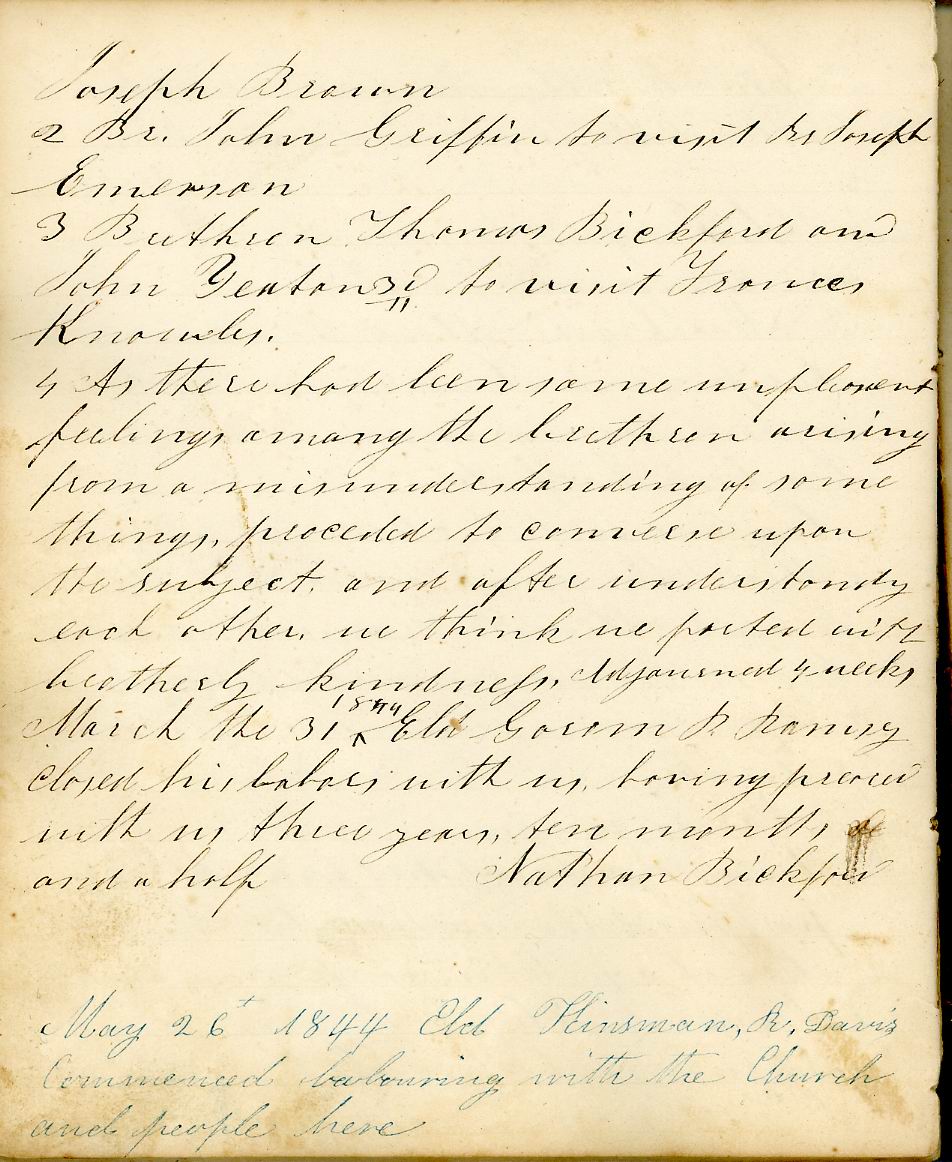 Joseph Brown
2 Br. John Griffin to visit Br Joseph
Emerson
3 Brethren Thomas Bickford and
John Yeaton 3d to visit Frances
Knowles.
4 As there had been some unpleasent
feelings among the brethren arising
from a misunderstanding of some
things, proceded to converse upon
the subject, and after understandg
each other, we think we parted with
brotherly kindness, Adjourned 4 weeks
March the 31 1844 Eld Gorem P Ramsey
closed his labors with us, having preacd
with us three years, ten months
and a half Nathan Bickford
May 26t 1844 Eld Kinsman, R, Davis
Commenced labouring with the Church
and people here